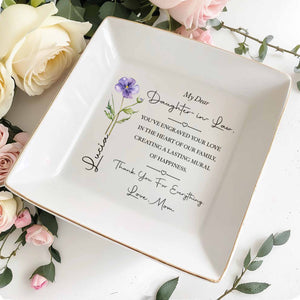 My Dear
Daughter-in-Law,
YOU'VE ENGRAVED YOUR LOVE
IN THE HEART OF OUR FAMILY,
CREATING A LASTING MURAL
OF HAPPINESS.
Thank You For Everything
Love, Mom.
Lucia